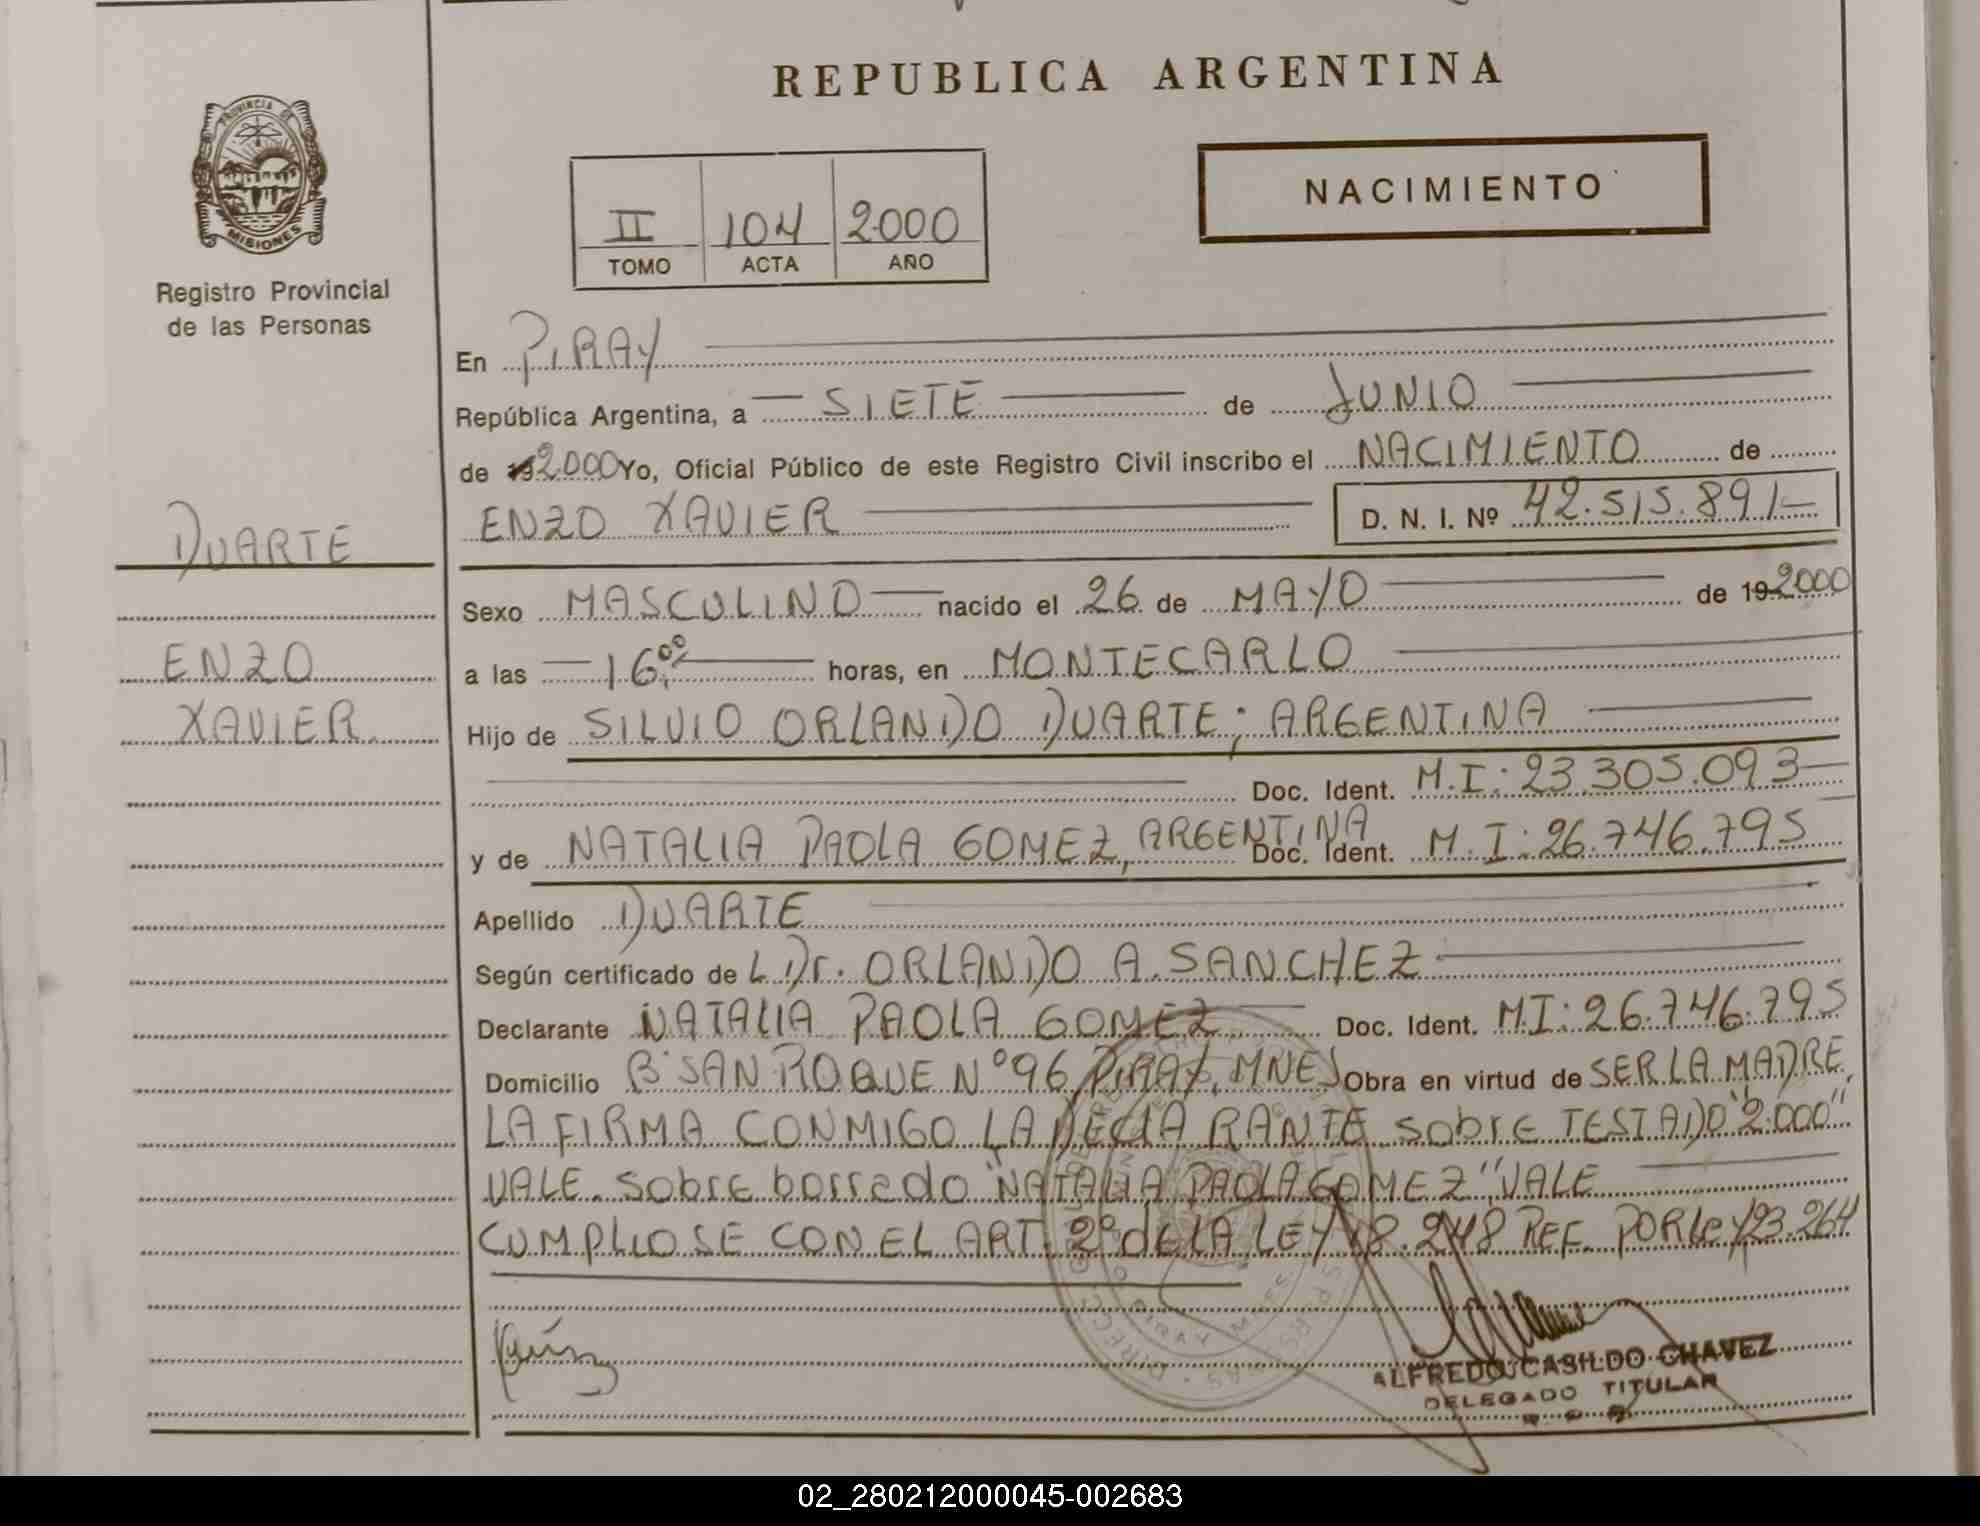 REPUBLICA ARGENTINA
PROVINCIA DE
MISIONES
Registro Provincial
de las Personas
II 104 2000
TOMO ACTA AÑO
NACIMIENTO
En PIRAY
República Argentina, a SIETE de JUNIO
de 19 2000 Yo, Oficial Público de este Registro Civil inscribo el NACIMIENTO de
ENZO XAVIER D. N. I. Nº 42.515.891/-
DUARTE
ENZO
XAVIER
Sexo MASCULINO nacido el 26 de MAYO de 19 2000
a las 16,00 horas, en MONTECARLO
Hijo de SILVIO ORLANDO DUARTE; ARGENTINA
Doc. Ident. M.I: 23.305.093
y de NATALIA PAOLA GOMEZ, ARGENTINA Doc. Ident. M.I: 26.746.795
Apellido DUARTE
Según certificado de L Dr. ORLANDO A. SANCHEZ
Declarante NATALIA PAOLA GOMEZ Doc. Ident. M.I: 26.746.795
Domicilio Bº SAN ROQUE Nº 96, PIRAY, MNES Obra en virtud de SER LA MADRE,
LA FIRMA CONMIGO LA DECLARANTE sobre TESTADO "2.000"
VALE. sobre borrado "NATALIA PAOLA GOMEZ" VALE
CUMPLIOSE CON EL ART. 2º de LA LEY 18.248 REF. POR LeY 23.264
ALFREDO CASILDO CHAVEZ
DELEGADO TITULAR
02_280212000045-002683